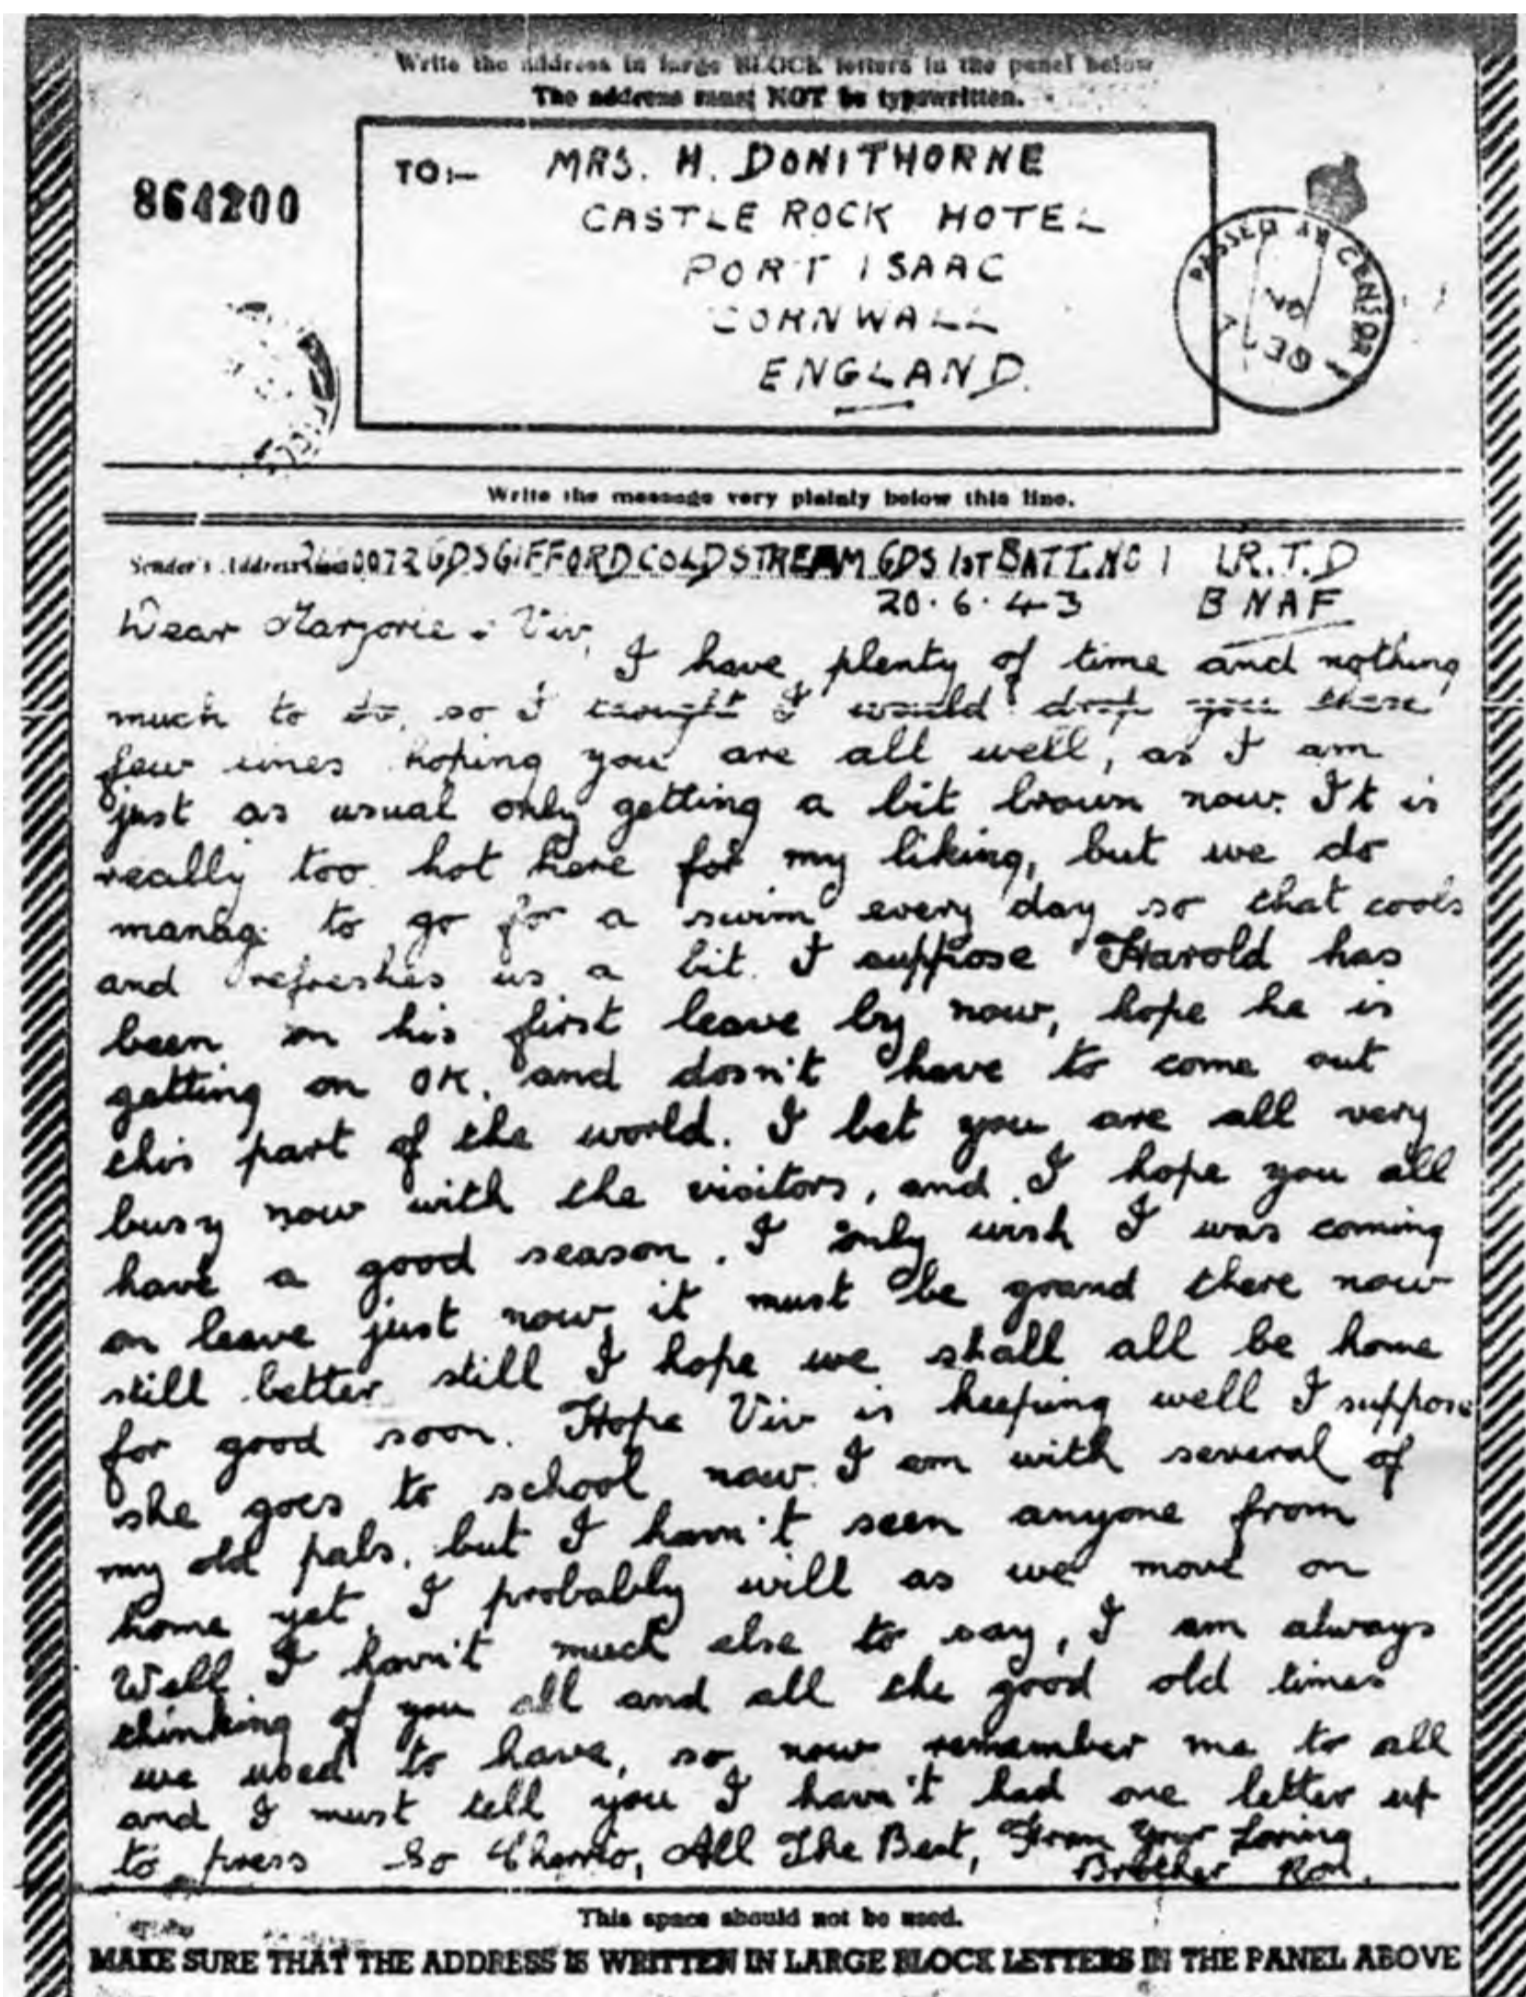 Write the address in large BLOCK letters in the panel below
The address must NOT be typewritten.
864200
TO:-
MRS. H. DONITHORNE
CASTLE ROCK HOTEL
PORT ISAAC
CORNWALL
ENGLAND.
PASSED BY CENSOR
Write the message very plainly below this line.
Sender's Address GDS GIFFORD COLDSTREAM GDS 1ST BATT. NO 1 I.R.T.D
20.6.43 BNAF
Dear Marjorie & Viv,
I have plenty of time and nothing
much to do, so I thought I would drop you these
few lines hoping you are all well, as I am
just as usual only getting a bit brown now. It is
really too hot here for my liking, but we do
manage to go for a swim every day so that cools
and refreshes us a bit. I suppose Harold has
been on his first leave by now, hope he is
getting on OK, and dosn't have to come out
this part of the world. I bet you are all very
busy now with the visitors, and I hope you all
have a good season. I only wish I was coming
on leave just now, it must be grand there now
still better still I hope we shall all be home
for good soon. Hope Viv is keeping well I suppose
she goes to school now. I am with several of
my old pals, but I havn't seen anyone from
home yet, I probably will as we move on
Well I havn't much else to say, I am always
thinking of you all and all the good old times
we used to have, so now remember me to all
and I must tell you I havn't had one letter up
to press So Cheerio, All The Best, From Your Loving
Brother Ron.
This space should not be used.
MAKE SURE THAT THE ADDRESS IS WRITTEN IN LARGE BLOCK LETTERS IN THE PANEL ABOVE